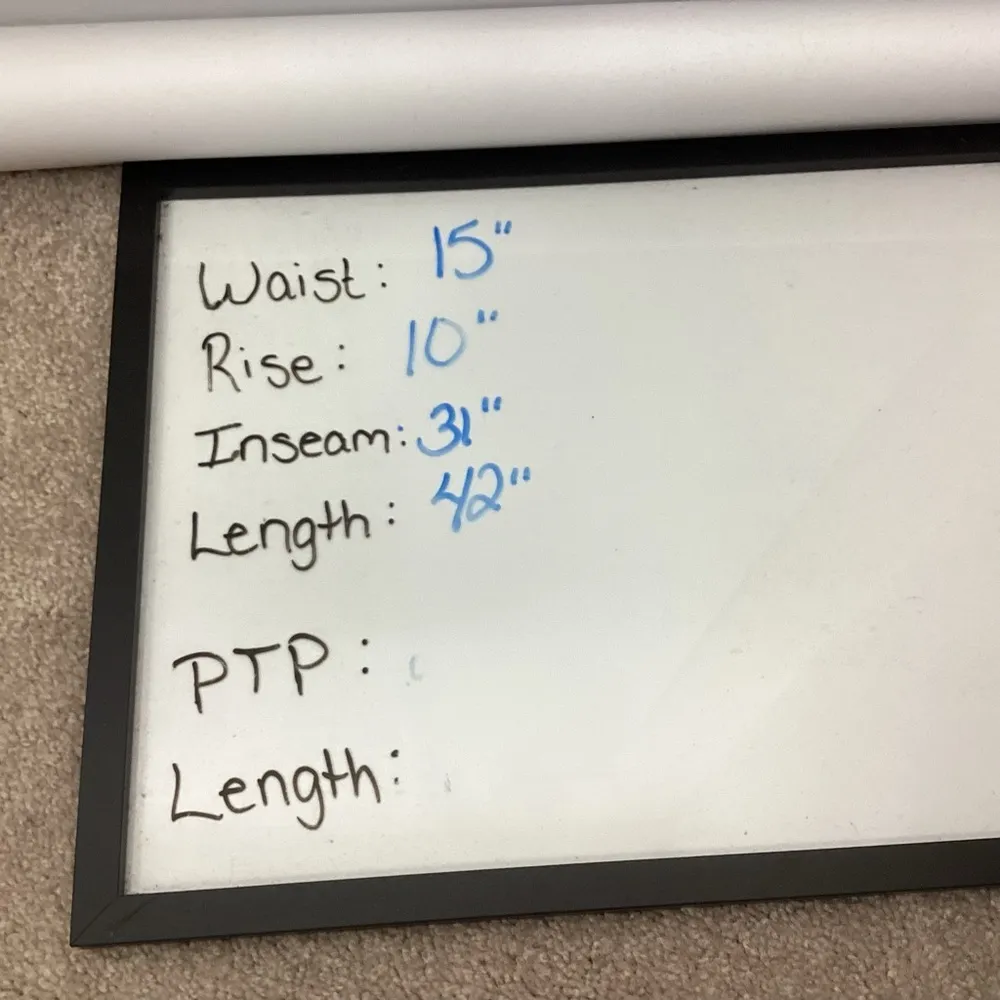 Waist: 15"
Rise: 10"
Inseam: 31"
Length: 42"
PTP:
Length: